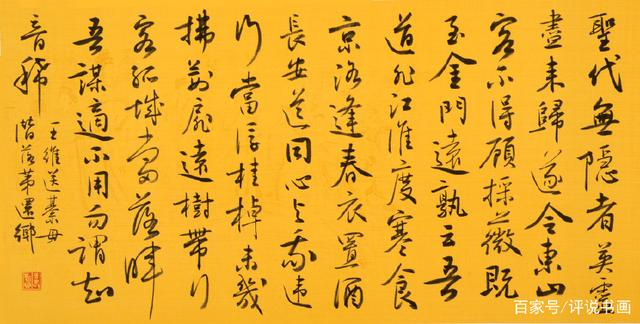 聖代無隱者英靈
盡來歸遂令東山
客不得顧採薇既
至金門遠孰云吾
道非江淮度寒食
京洛逢春衣置酒
長安道同心与我違
行當浮桂棹未幾
拂荊扉遠樹帶行
客孤城當落暉
吾謀適不用勿謂知
音稀
王維送綦毋
潛落第還鄉
百家号/评说书画